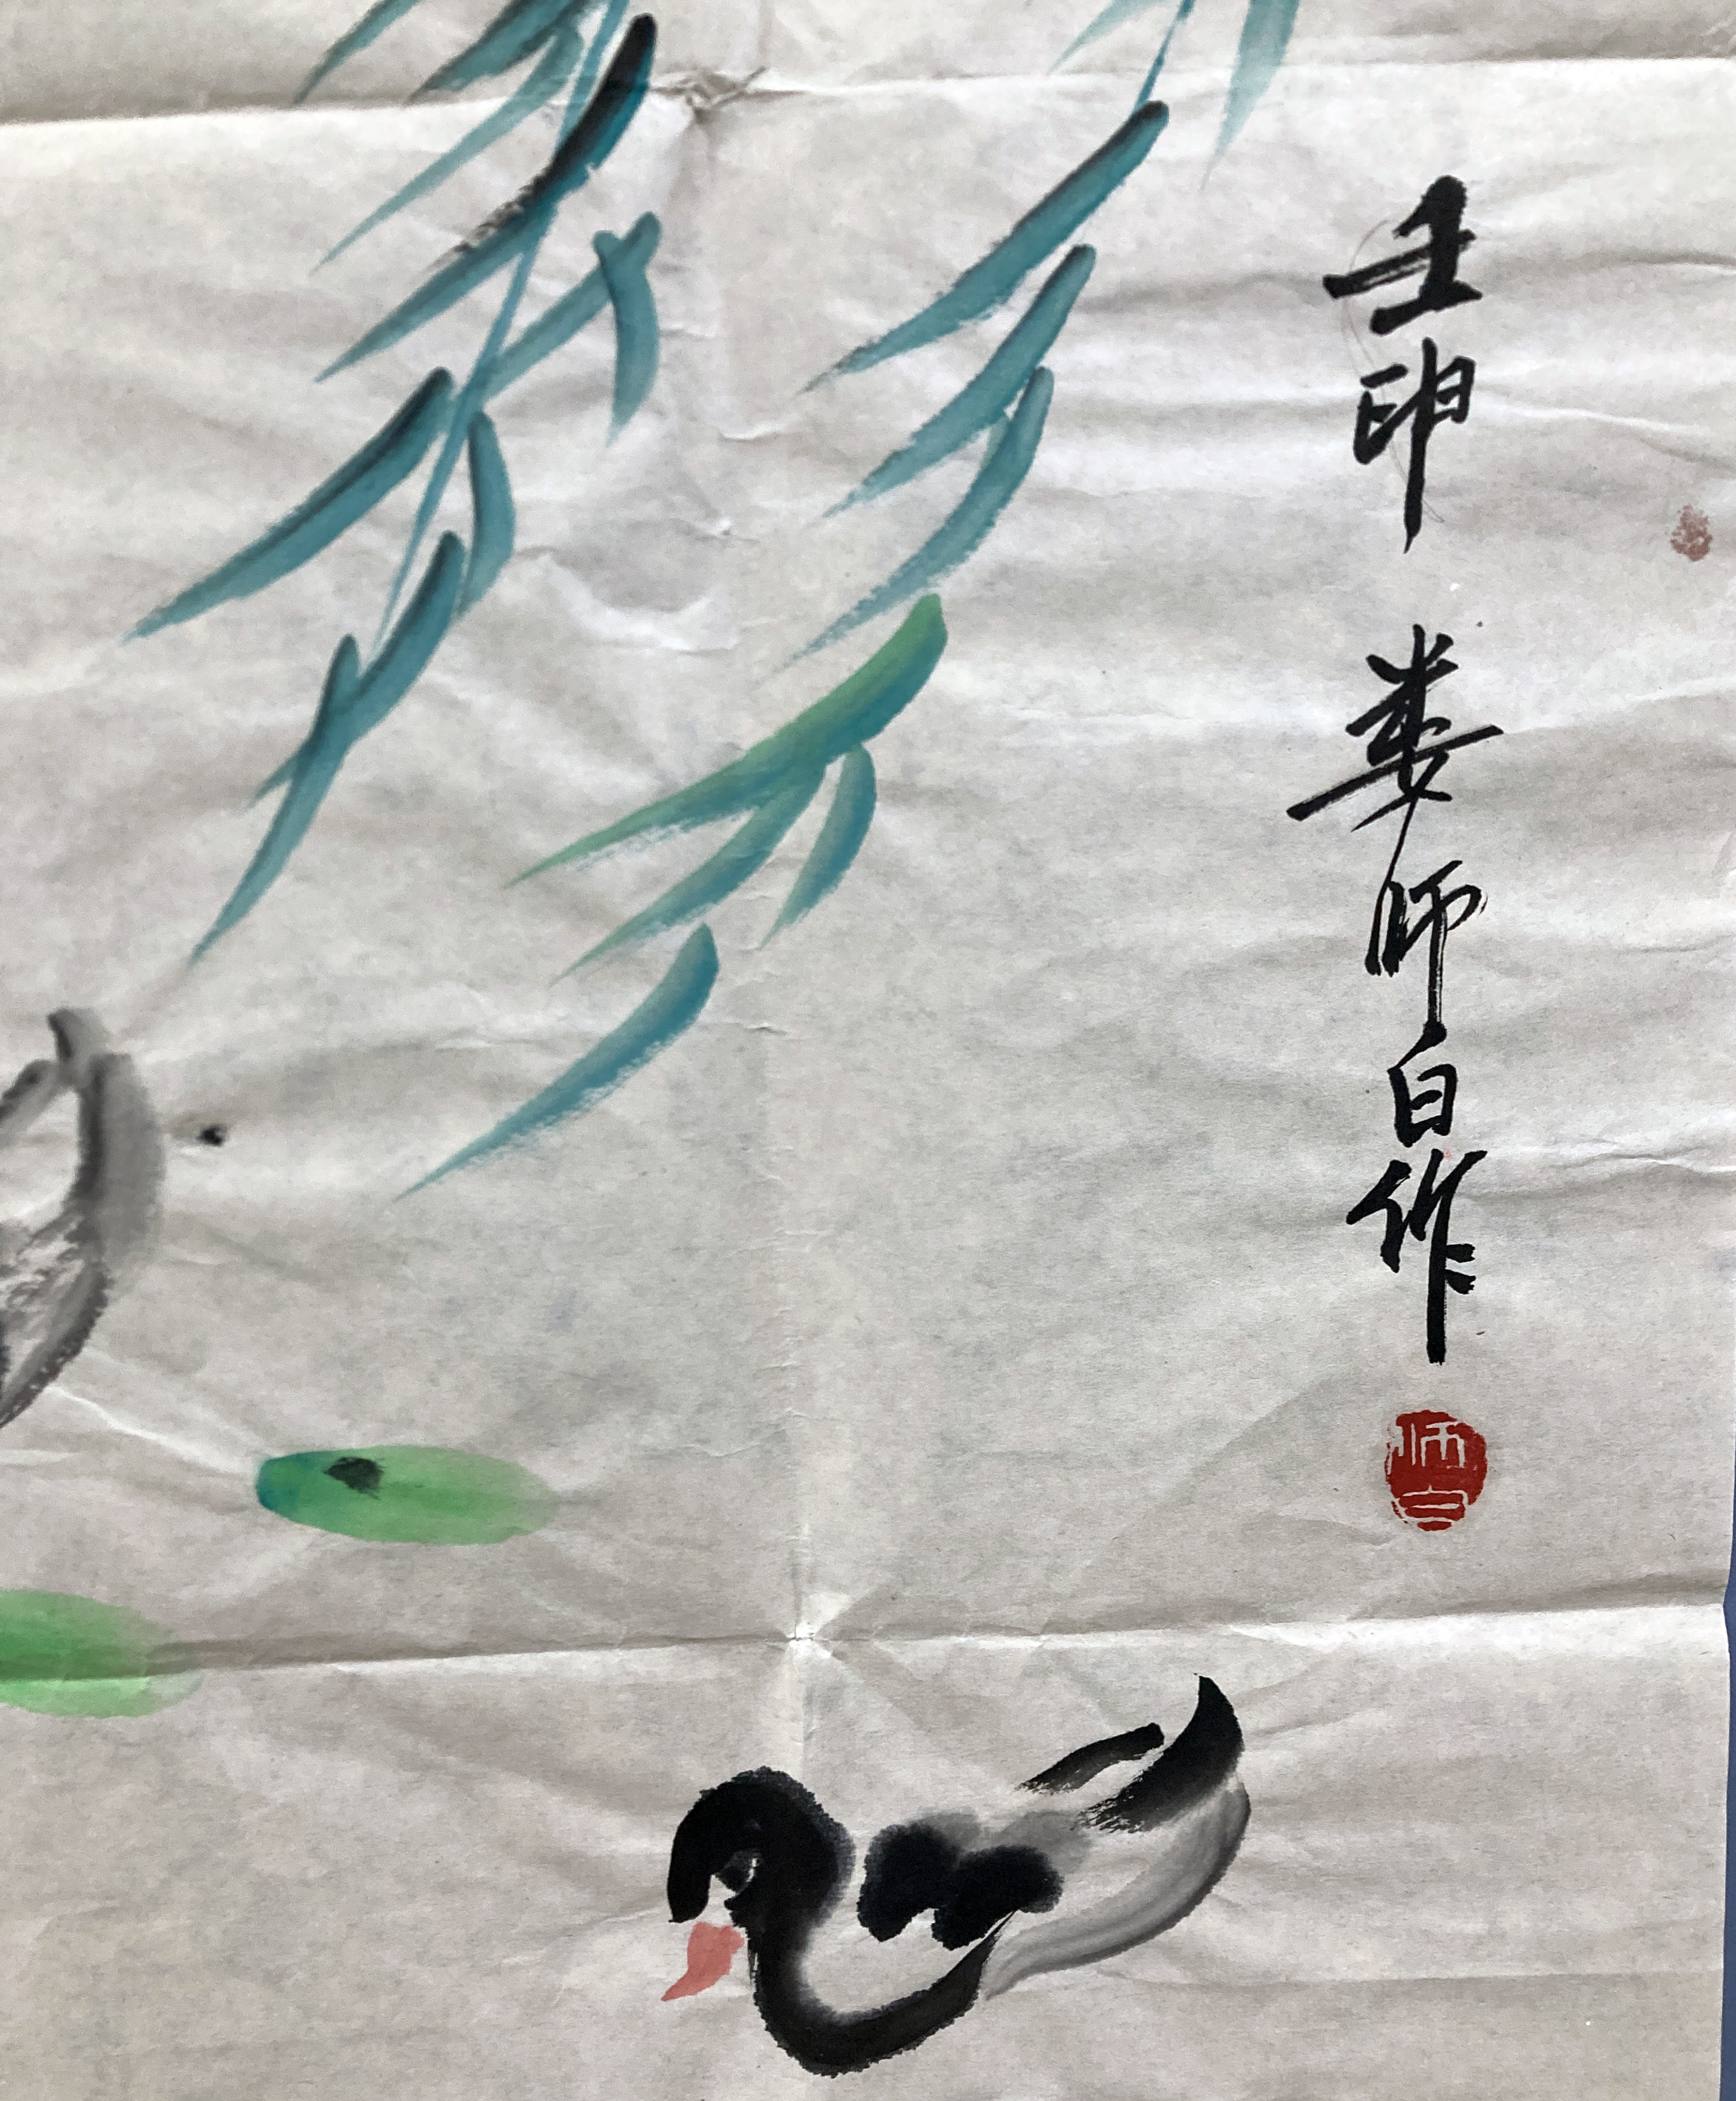 壬申 娄师白作
师白